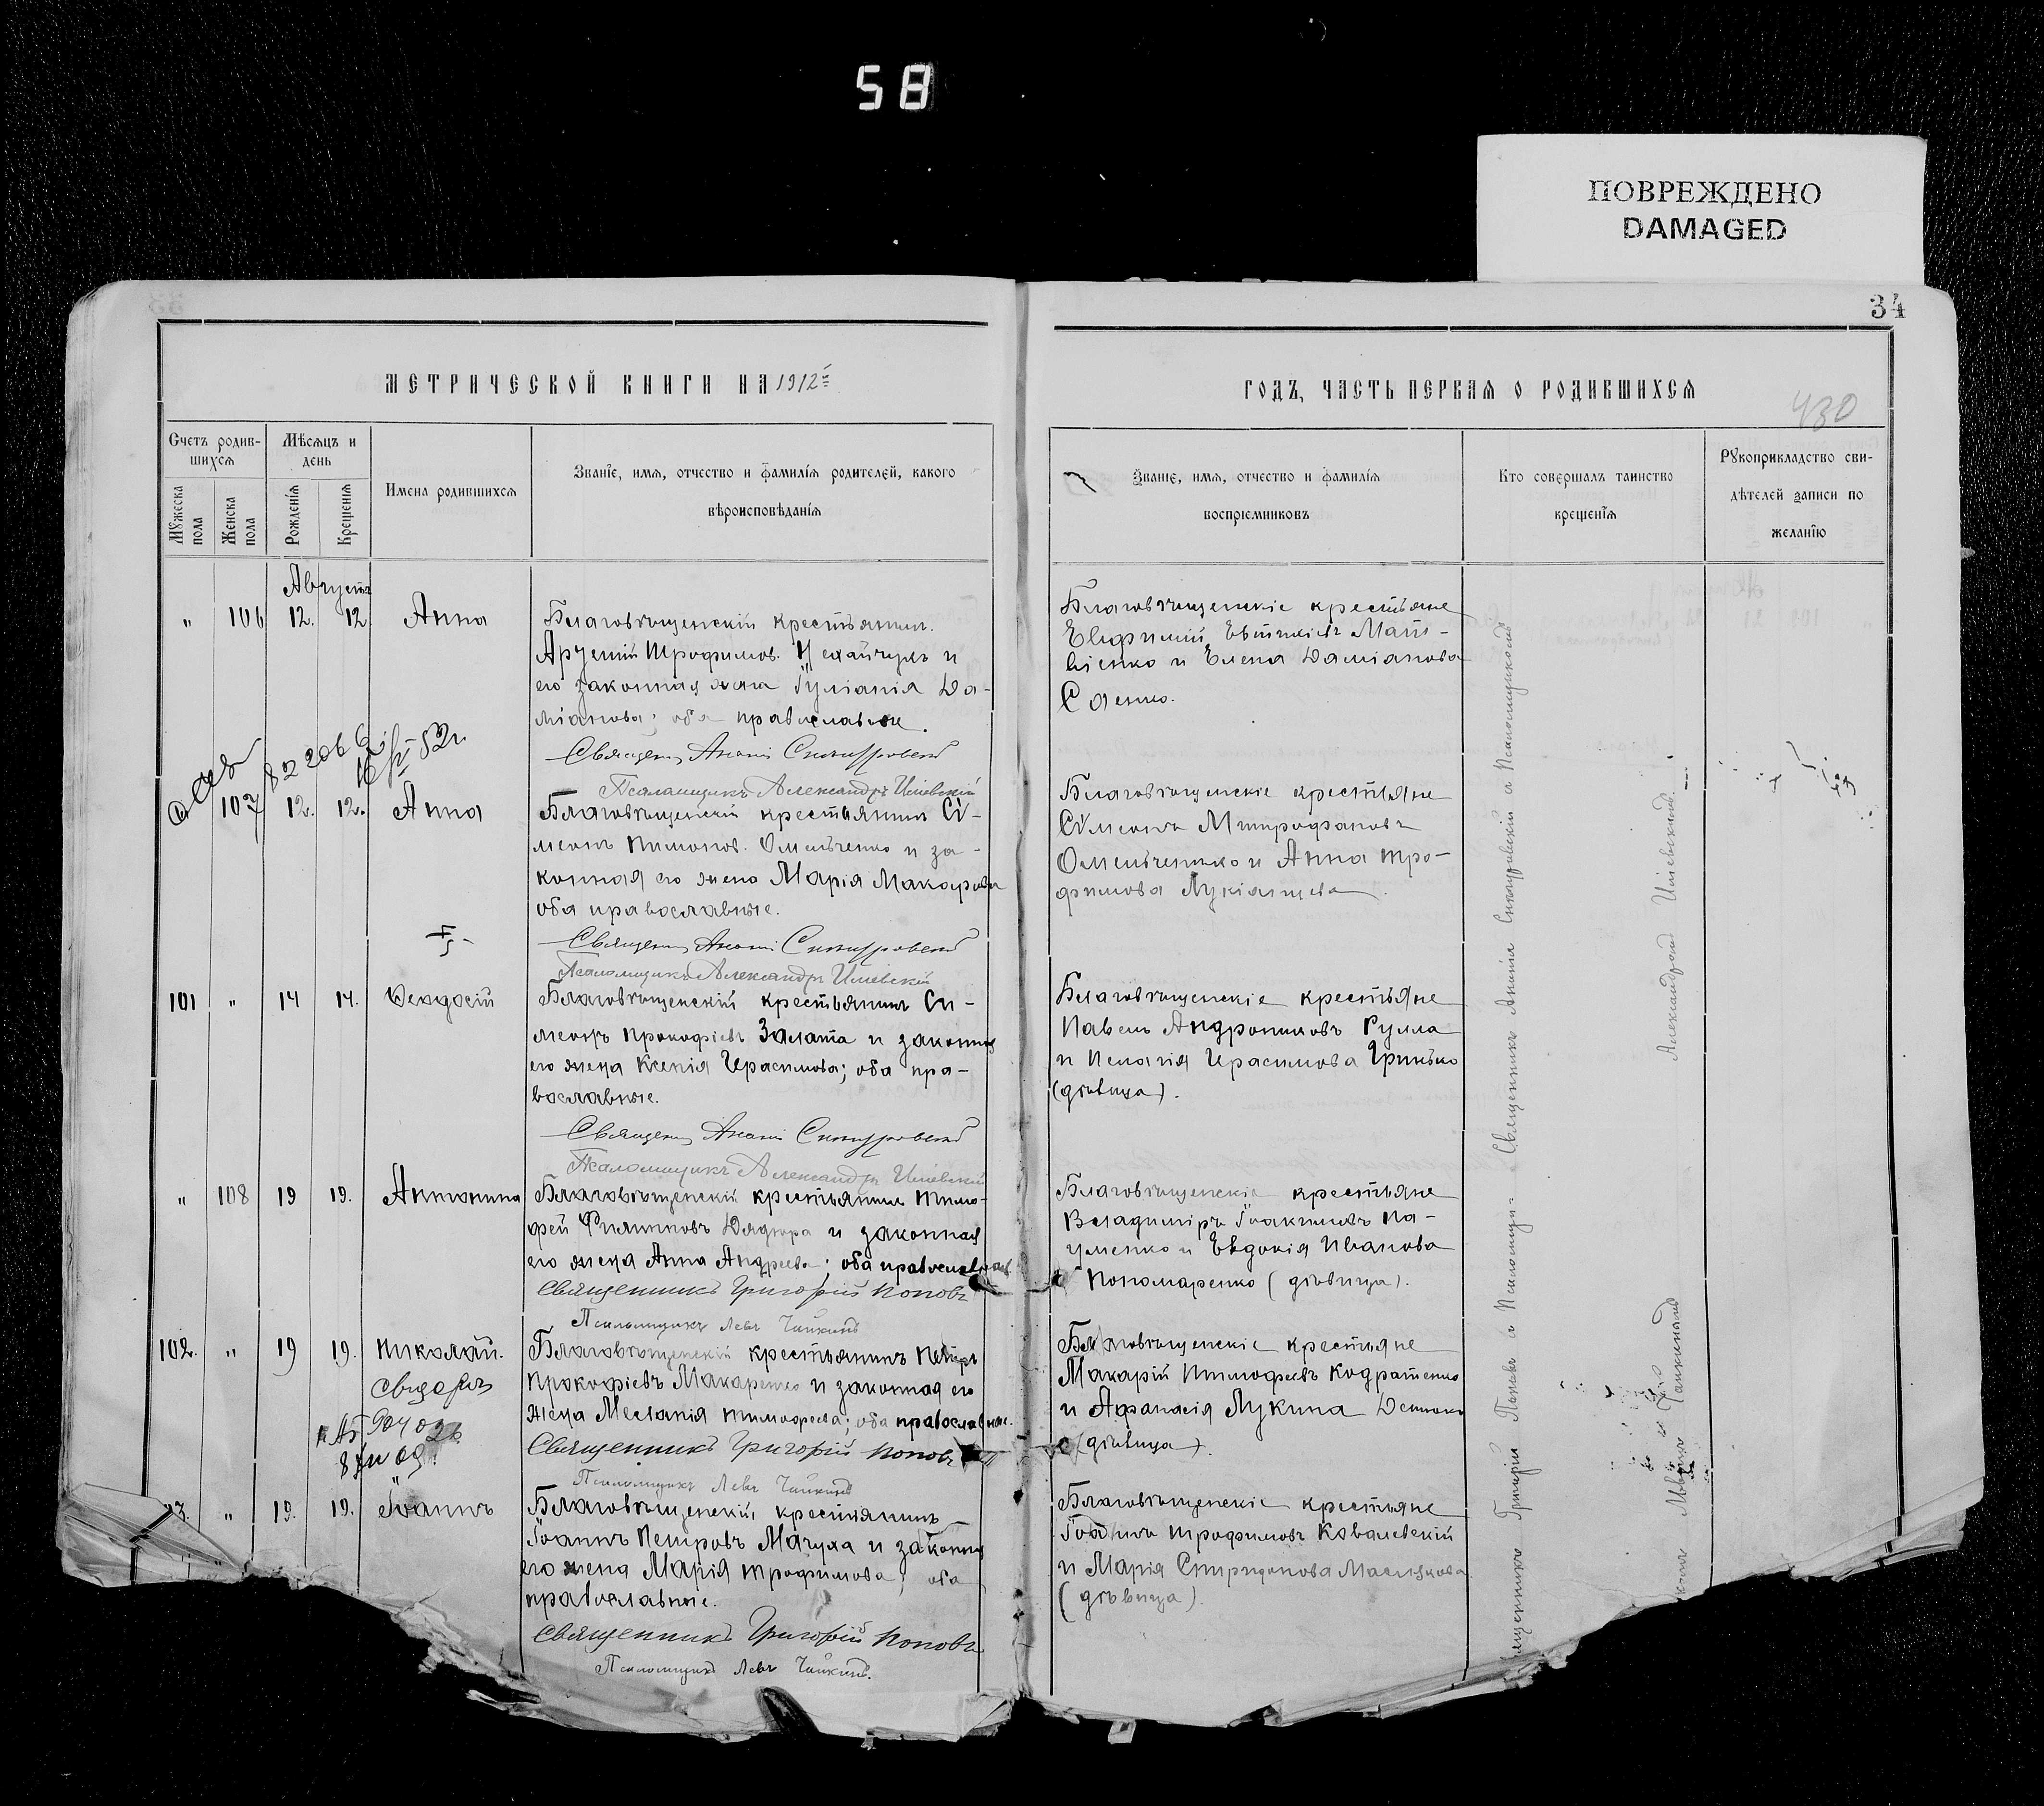 58
ПОВРЕЖДЕНО
DAMAGED
34
МЕТРИЧЕСКОЙ КНИГИ НА 1912
ГОДЪ, ЧАСТЬ ПЕРВАЯ О РОДИВШИХСЯ
430
Счетъ родив-
шихся
Мѣсяцъ и
день
Мужеска
пола
Женска
пола
Рожденія
Крещенія
Имена родившихся
Званіе, имя, отчество и фамилія родителей, какого
вѣроисповѣданія
Званіе, имя, отчество и фамилія
воспріемниковъ
Кто совершалъ таинство
крещенія
Рукоприкладство сви-
дѣтелей записи по
желанію
Августъ
" 106 12. 12 Анна
Благовѣщенскій крестьянинъ
Трофимов. и
его законная жена Іуліанія Да-
міанова; оба православные.
Священ. Анані
Псаломщикъ Александръ
Благовѣщенскіе крестьяне
Евфимій Мат-
віенко и Елена Даміанова
Саенко.
107 12. 12. Анна
Благовѣщенскій крестьянинъ Сѵ-
меонъ Тимонов. Омельченко и за-
конная его жена Марія Макарова
оба православные.
Священ. Анані
Псаломщикъ Александръ
Благовѣщенскіе крестьяне
Сѵмеонъ Митрофановъ
Омельченко и Анна Тро-
фимова
101 " 14 14. Ѳеодосій
Благовѣщенскій крестьянинъ Си-
меонъ Прокофіевъ Залата и законная
его жена Ксенія Герасимова; оба пра-
вославные.
Священ. Анані
Псаломщикъ Александръ
Благовѣщенскіе крестьяне
Павелъ Андрониковъ Рулла
и Пелагія Герасимова Гринько
(дѣвица).
" 108 19 19. Антонина
Благовѣщенскій крестьянинъ Тимо-
фей Филипповъ Дядюра и законная
его жена Анна Андреева; оба православные
Священникъ Григорій Поповъ
Псаломщикъ Левъ Чайкинъ
Благовѣщенскіе крестьяне
Владиміръ Іоакимовъ На-
уменко и Евдокія Иванова
Пономаренко (дѣвица).
102. " 19 19. Николай.
Благовѣщенскій крестьянинъ Петръ
Прокофіевъ Макаренко и законная его
жена Меланія Тимофеева; оба православные.
Священникъ Григорій Поповъ
Псаломщикъ Левъ Чайкинъ
Благовѣщенскіе крестьяне
Макарій Тимофеевъ Кодратенко
и Афанасія Лукина
(дѣвица).
3. " 19. 19. Іоаннъ
Благовѣщенскій крестьянинъ
Іоаннъ Петровъ Мачуха и законная
его жена Марія Трофимова; оба
православные.
Священникъ Григорій Поповъ
Псаломщикъ Левъ Чайкинъ.
Благовѣщенскіе крестьяне
Іоаннъ Трофимовъ Ковалевскій
и Марія Спиридонова
(дѣвица).